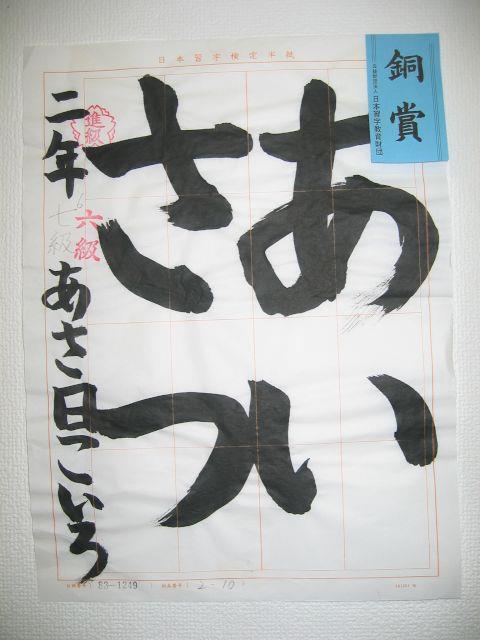 日本習字検定半紙
銅賞
公益財団法人 日本習字教育財団
あい
さつ
進級
六級
七級
二年 あさ日こいろ
83-1249
2-10